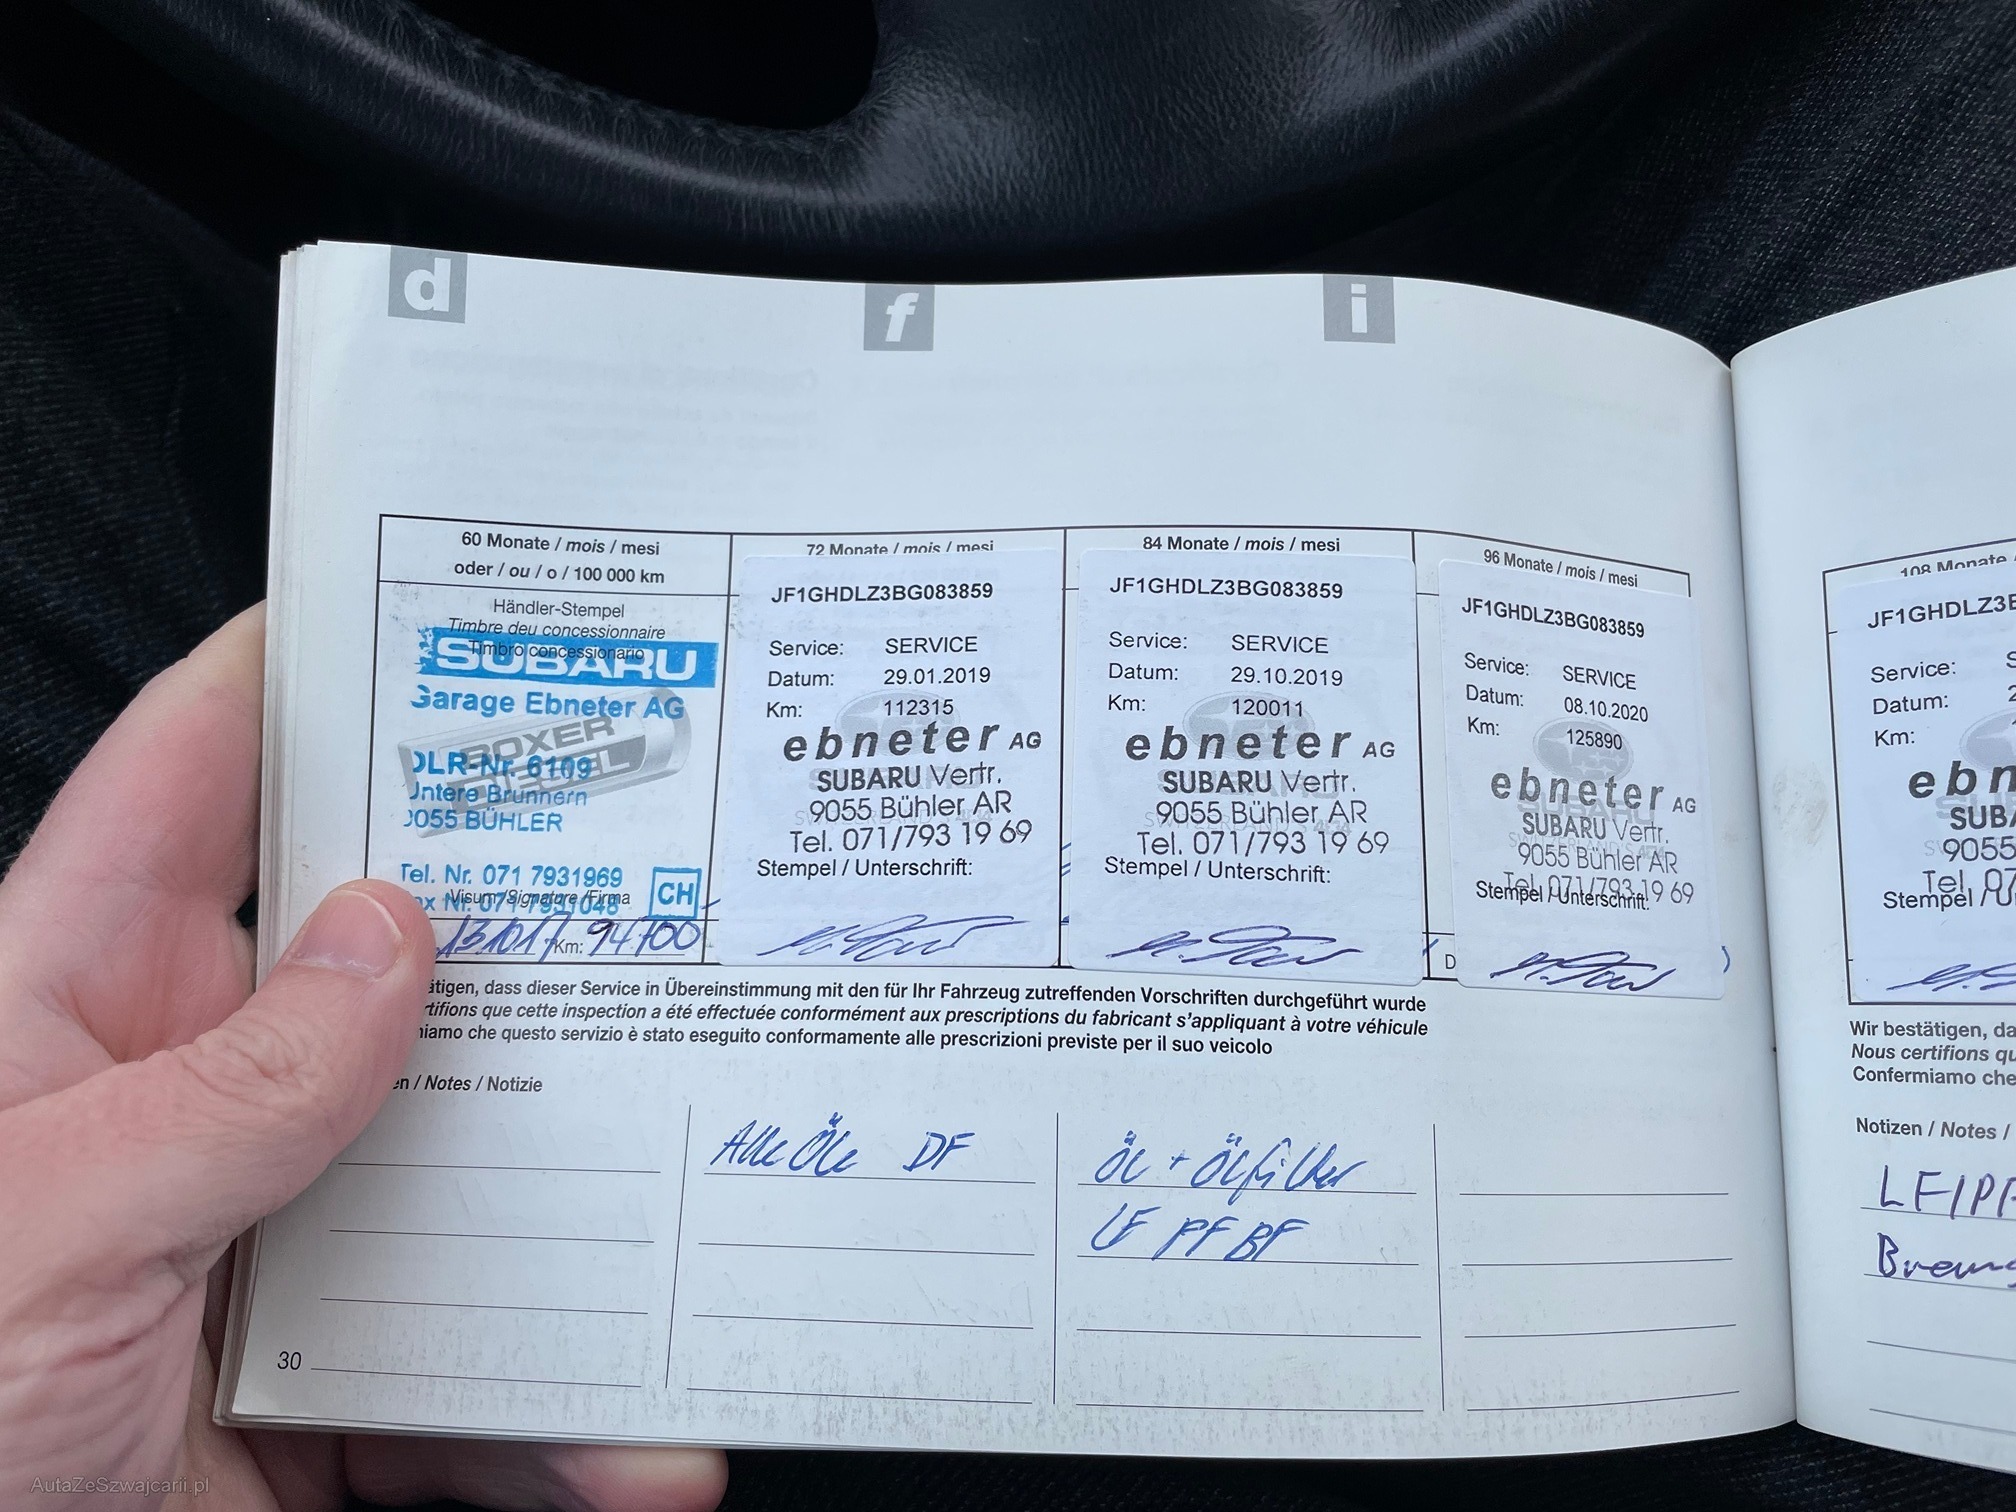 d
f
i
60 Monate / mois / mesi
oder / ou / o / 100 000 km
Händler-Stempel
Timbre deu concessionnaire
Timbro concessionario
SUBARU
Garage Ebneter AG
BOXER
DLR-Nr. 6109
Untere Brunnern
9055 BÜHLER
Tel. Nr. 071 7931969
CH
Visum/Signature/Firma
Fax Nr. 071 7931048
13.10.17 Km: 94700
72 Monate / mois / mesi
JF1GHDLZ3BG083859
Service: SERVICE
Datum: 29.01.2019
Km: 112315
ebneter AG
SUBARU Vertr.
9055 Bühler AR
Tel. 071/793 19 69
Stempel / Unterschrift:
84 Monate / mois / mesi
JF1GHDLZ3BG083859
Service: SERVICE
Datum: 29.10.2019
Km: 120011
ebneter AG
SUBARU Vertr.
9055 Bühler AR
Tel. 071/793 19 69
Stempel / Unterschrift:
96 Monate / mois / mesi
JF1GHDLZ3BG083859
Service: SERVICE
Datum: 08.10.2020
Km: 125890
ebneter AG
SUBARU Vertr.
9055 Bühler AR
Tel. 071/793 19 69
Stempel / Unterschrift:
D
ätigen, dass dieser Service in Übereinstimmung mit den für Ihr Fahrzeug zutreffenden Vorschriften durchgeführt wurde
rtifions que cette inspection a été effectuée conformément aux prescriptions du fabricant s'appliquant à votre véhicule
niamo che questo servizio è stato eseguito conformamente alle prescrizioni previste per il suo veicolo
en / Notes / Notizie
Alle Öle DF
Öl + Ölfilter
LF PF BF
30
108 Monate
JF1GHDLZ3B
Service: S
Datum: 2
Km:
ebn
SUBA
9055
Tel. 07
Stempel / U
Wir bestätigen, da
Nous certifions qu
Confermiamo che
Notizen / Notes /
LF/PF
Brems
AutaZeSzwajcarii.pl